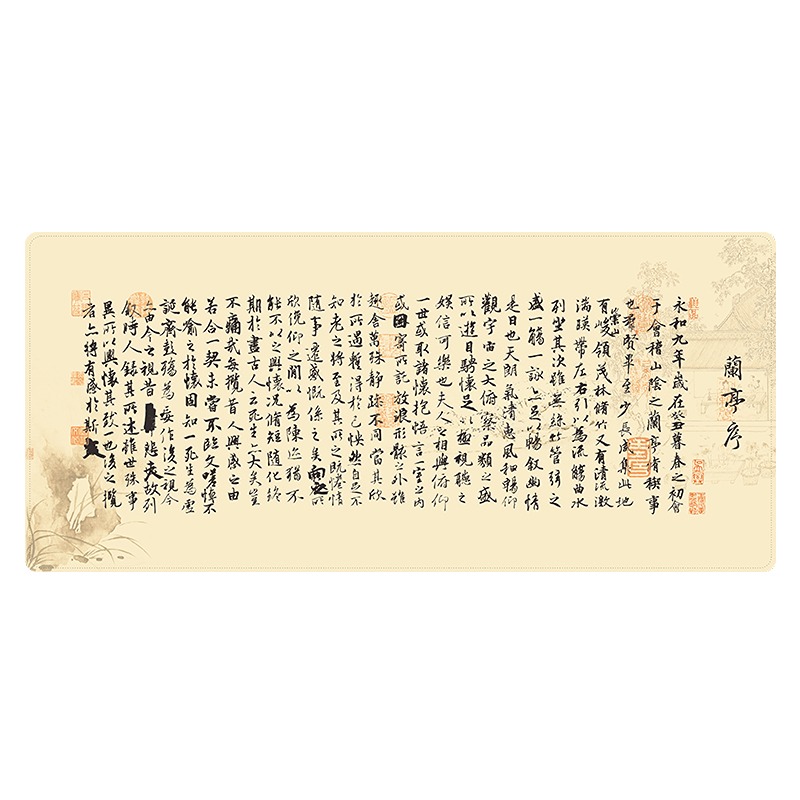 蘭亭序
永和九年歲在癸丑暮春之初會
于會稽山陰之蘭亭脩稧事
也羣賢畢至少長咸集此地
有崇山峻領茂林脩竹又有清流激
湍暎帶左右引以為流觴曲水
列坐其次雖無絲竹管弦之
盛一觴一詠亦足以暢敘幽情
是日也天朗氣清惠風和暢仰
觀宇宙之大俯察品類之盛
所以遊目騁懷足以極視聽之
娛信可樂也夫人之相與俯仰
一世或取諸懷抱悟言一室之內
或因寄所託放浪形骸之外雖
趣舍萬殊靜躁不同當其欣
於所遇蹔得於己怏然自足不
知老之將至及其所之既惓情
隨事遷感慨係之矣向之所
欣俛仰之閒以為陳迹猶不
能不以之興懷況脩短隨化終
期於盡古人云死生亦大矣豈
不痛哉每攬昔人興感之由
若合一契未嘗不臨文嗟悼不
能喻之於懷固知一死生為虛
誕齊彭殤為妄作後之視今
亦由今之視昔悲夫故列
敘時人錄其所述雖世殊事
異所以興懷其致一也後之攬
者亦將有感於斯文